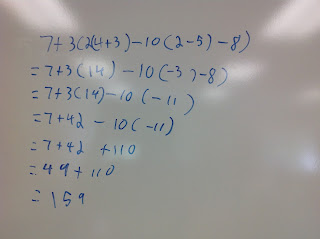 7+3(2(4+3)-10(2-5)-8)
=7+3(14)-10(-3)-8)
=7+3(14)-10(-11)
=7+42-10(-11)
=7+42+110
=49+110
=159